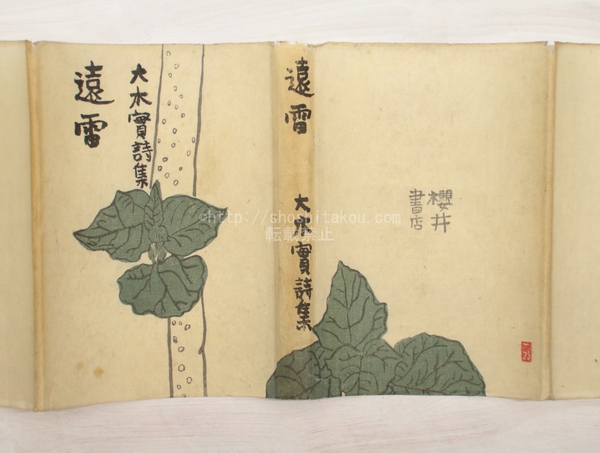 遠雷
大木實詩集
遠雷
大木實詩集
櫻井
書店
©http://shoshitakou.com/
転載禁止